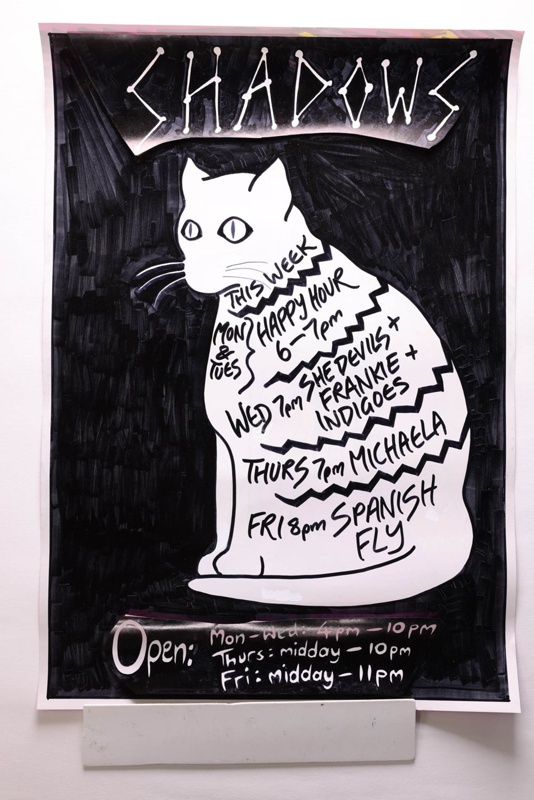 SHADOWS
THIS WEEK
MON & TUES } HAPPY HOUR
6-7pm
WED 7pm SHE DEVILS +
FRANKIE +
INDIGOES
THURS 7pm MICHAELA
FRI 8pm SPANISH
FLY
Open: Mon-Wed: 4pm-10pm
Thurs: midday-10pm
Fri: midday-11pm